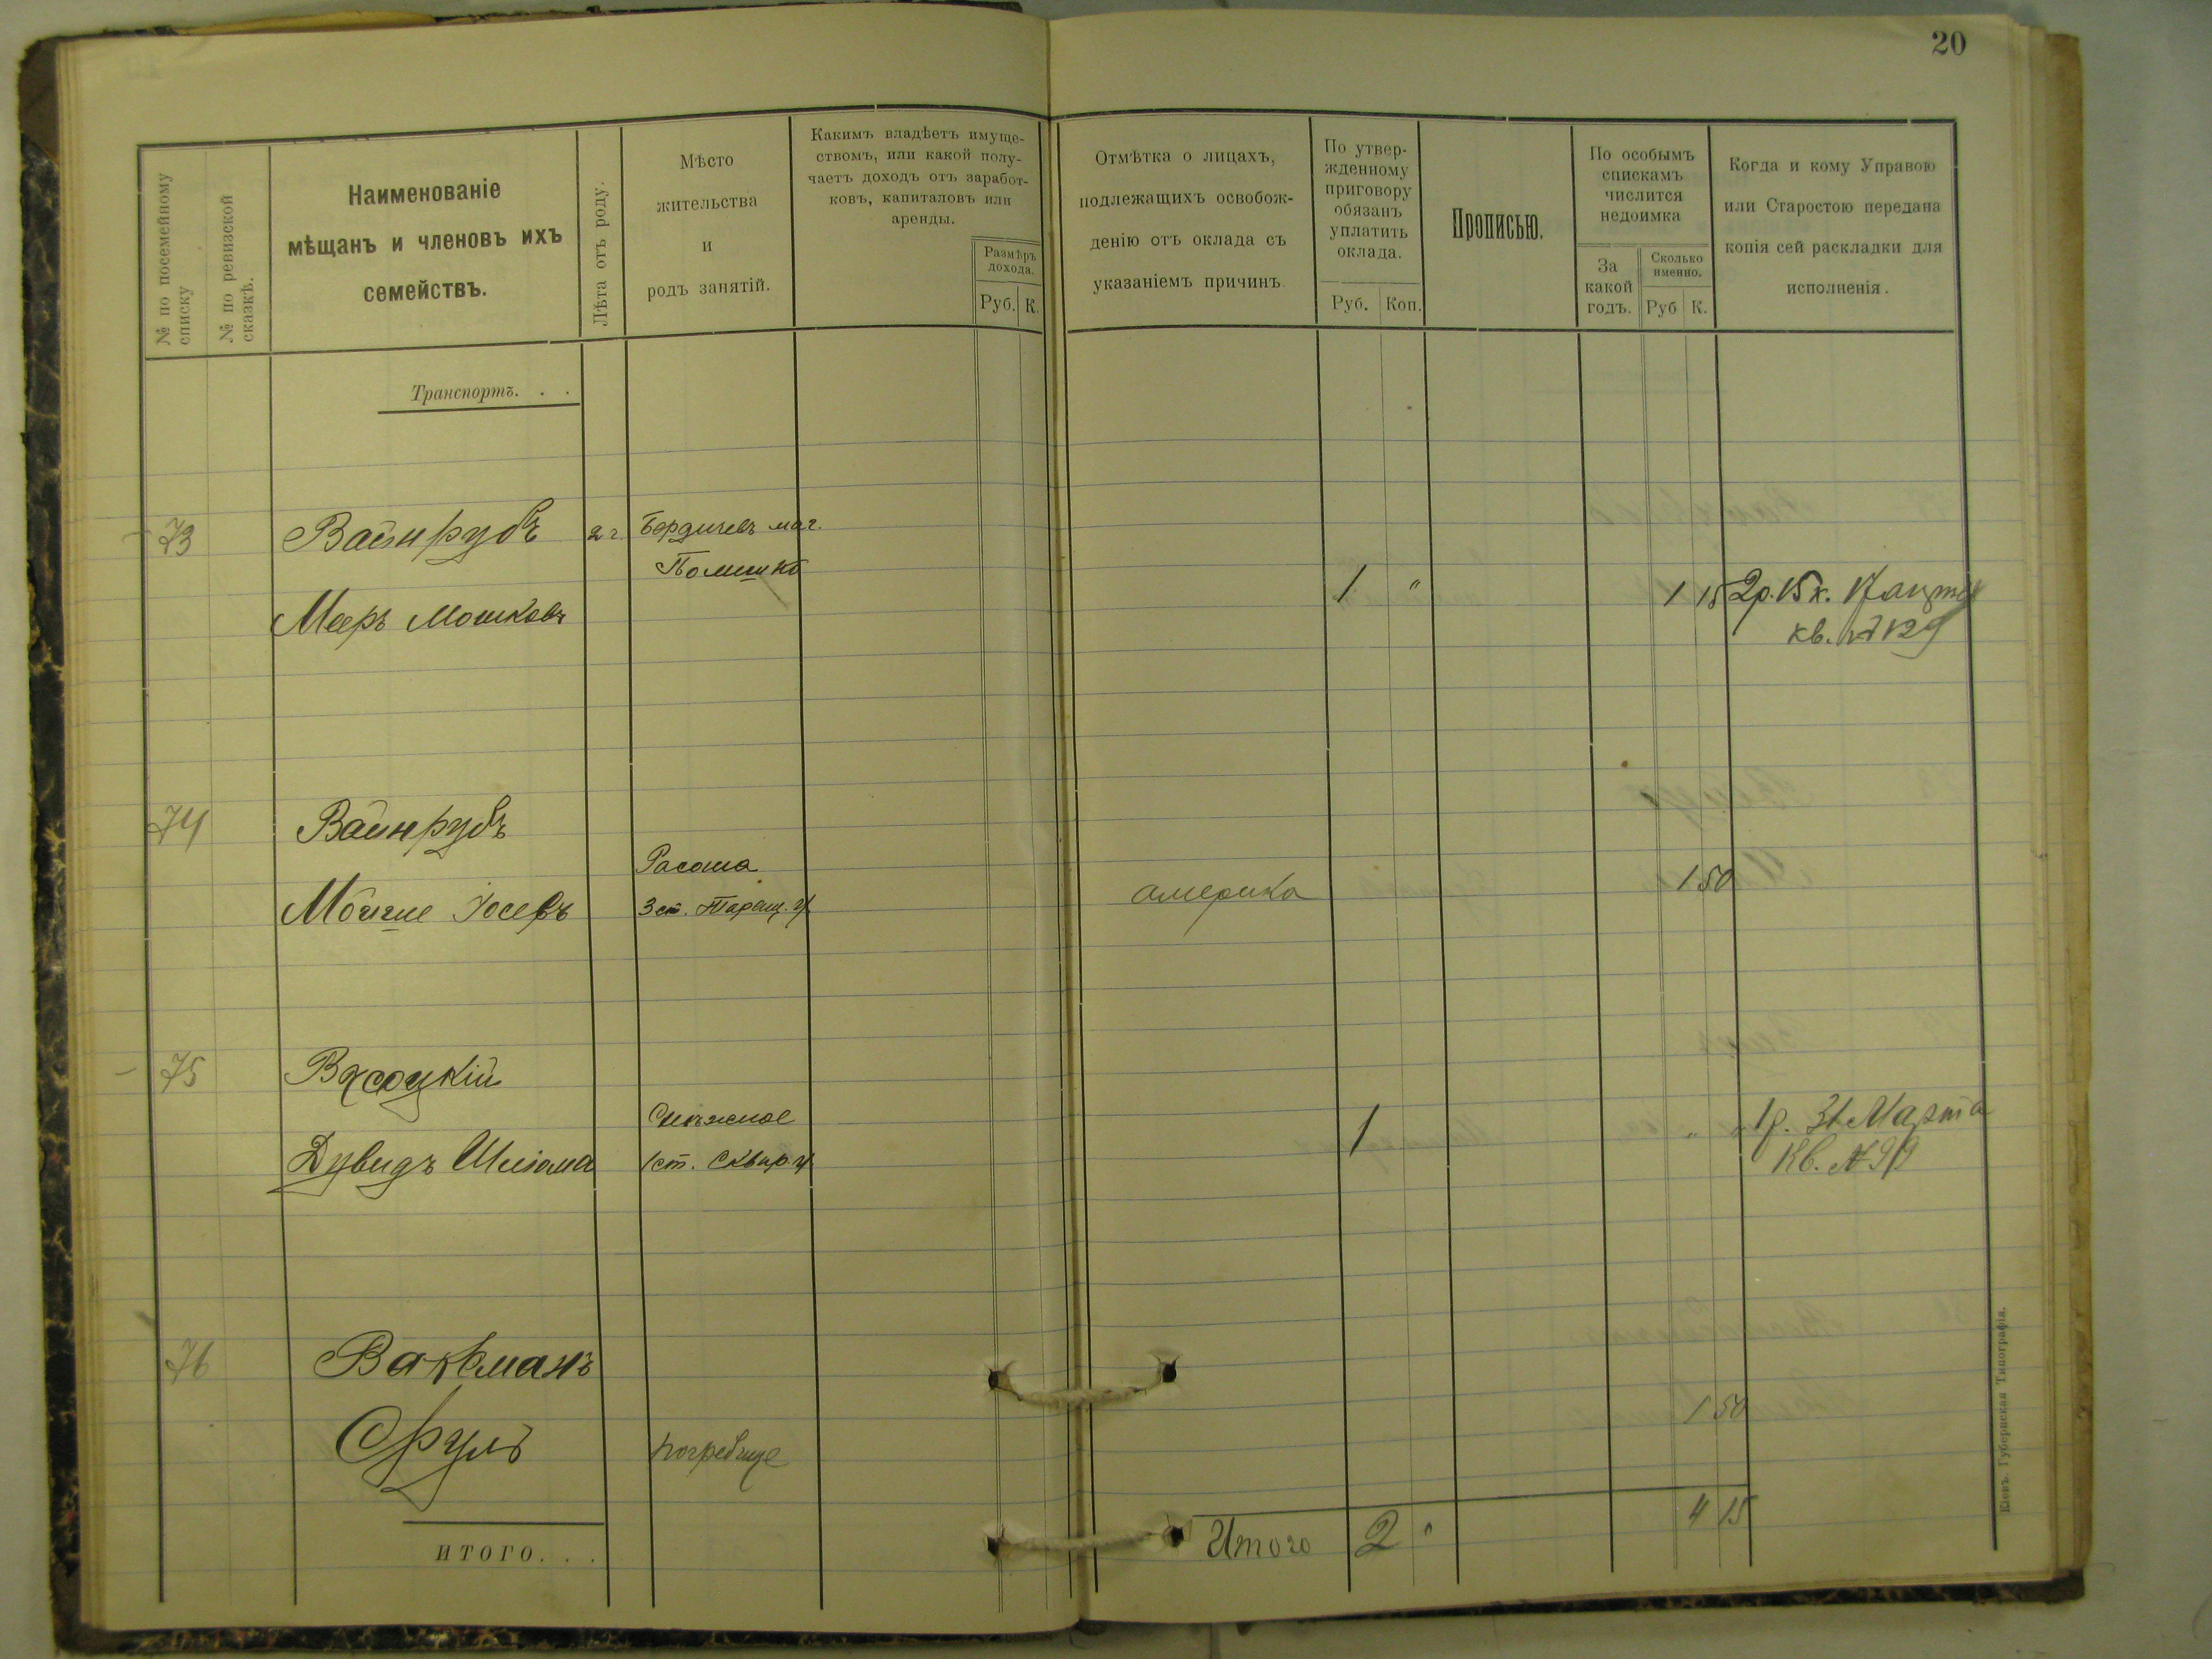 20
№ по посемейному списку
№ по ревизской сказкѣ.
Наименованіе
мѣщанъ и членовъ ихъ
семействъ.
Лѣта отъ роду.
Мѣсто
жительства
и
родъ занятій.
Какимъ владѣетъ имуще-
ствомъ, или какой полу-
чаетъ доходъ отъ заработ-
ковъ, капиталовъ или
аренды.
Размѣръ
дохода.
Руб. К.
Отмѣтка о лицахъ,
подлежащихъ освобож-
денію отъ оклада съ
указаніемъ причинъ
По утвер-
жденному
приговору
обязанъ
уплатить
оклада.
Руб. Коп.
Прописью.
По особымъ
спискамъ
числится
недоимка
За
какой
годъ.
Сколько
именно.
Руб К.
Когда и кому Управою
или Старостою передана
копія сей раскладки для
исполненія.
Транспортъ. . .
73 Вайнрубъ 2 г. Бердичевъ маг.
Мееръ Мошковъ 1 " 1 15 2р. 15 к.
кв. № 129
74 Вайнрубъ
Расоша
Мойше Іосевъ 3 ст. Таращ. у. америка 1 50
75 Высоцкій
Снѣжное
Дувидъ Шлiома 1 ст. Сквир. у. 1 " " 1р. 31 Марта
Кв. № 99
76 Вакманъ
Сруль погребище 1 50
ИТОГО. . . Итого 2 " 4 15
Кіевъ. Губернская Типографія.